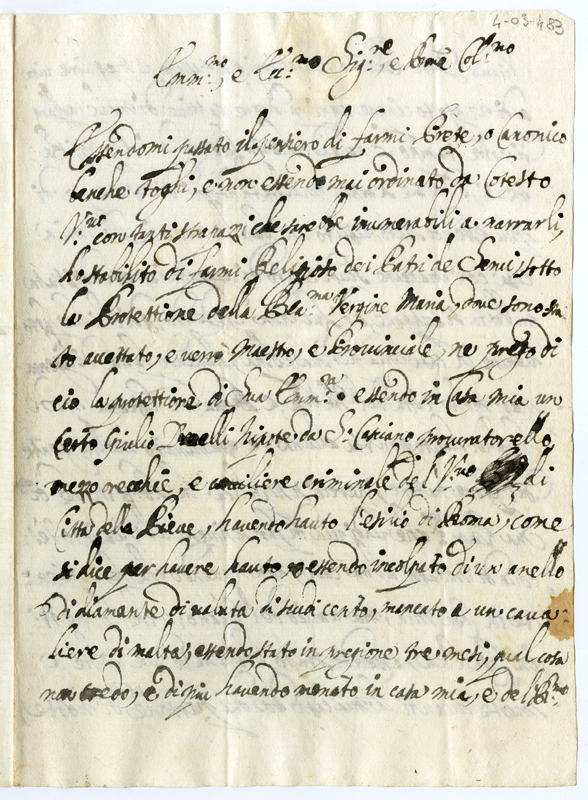 4-03-483
Emm.mo, e Rev.mo Sig.re, e Pron Col.mo
Essendomi passato il pensiero di farmi Prete, o Canonico
banche toghi, e non essendo mai ordinato da Cotesto
V.rio con tanti stranazzi che sarebbe inumerabili a narrarli,
ho stabilito di farmi Religioso dei Patri de Servi sotto
la Protettione della Bea.ma Vergine Maria, dove sono sta
to accettato, e verrò Maestro, e Provinciale, ne prego di
cio la protettione di Sua Emm.za essendo in Casa mia un
certo Giulio Nipote da Canciano procuratorello
mezo recchie, e canciliere criminale de l'V.rio di
Città della Pieve, havendo hauto l'esilio di Roma, come
si dice per havere hauto essendo incolpato di un anello
di diamante di valuta di scudi cento, mancato a un cava:
liere di malta, essendo stato in pregione tre mesi, qual cosa
non credo, e di più havendo menato in casa mia, e de l'Ill.mo